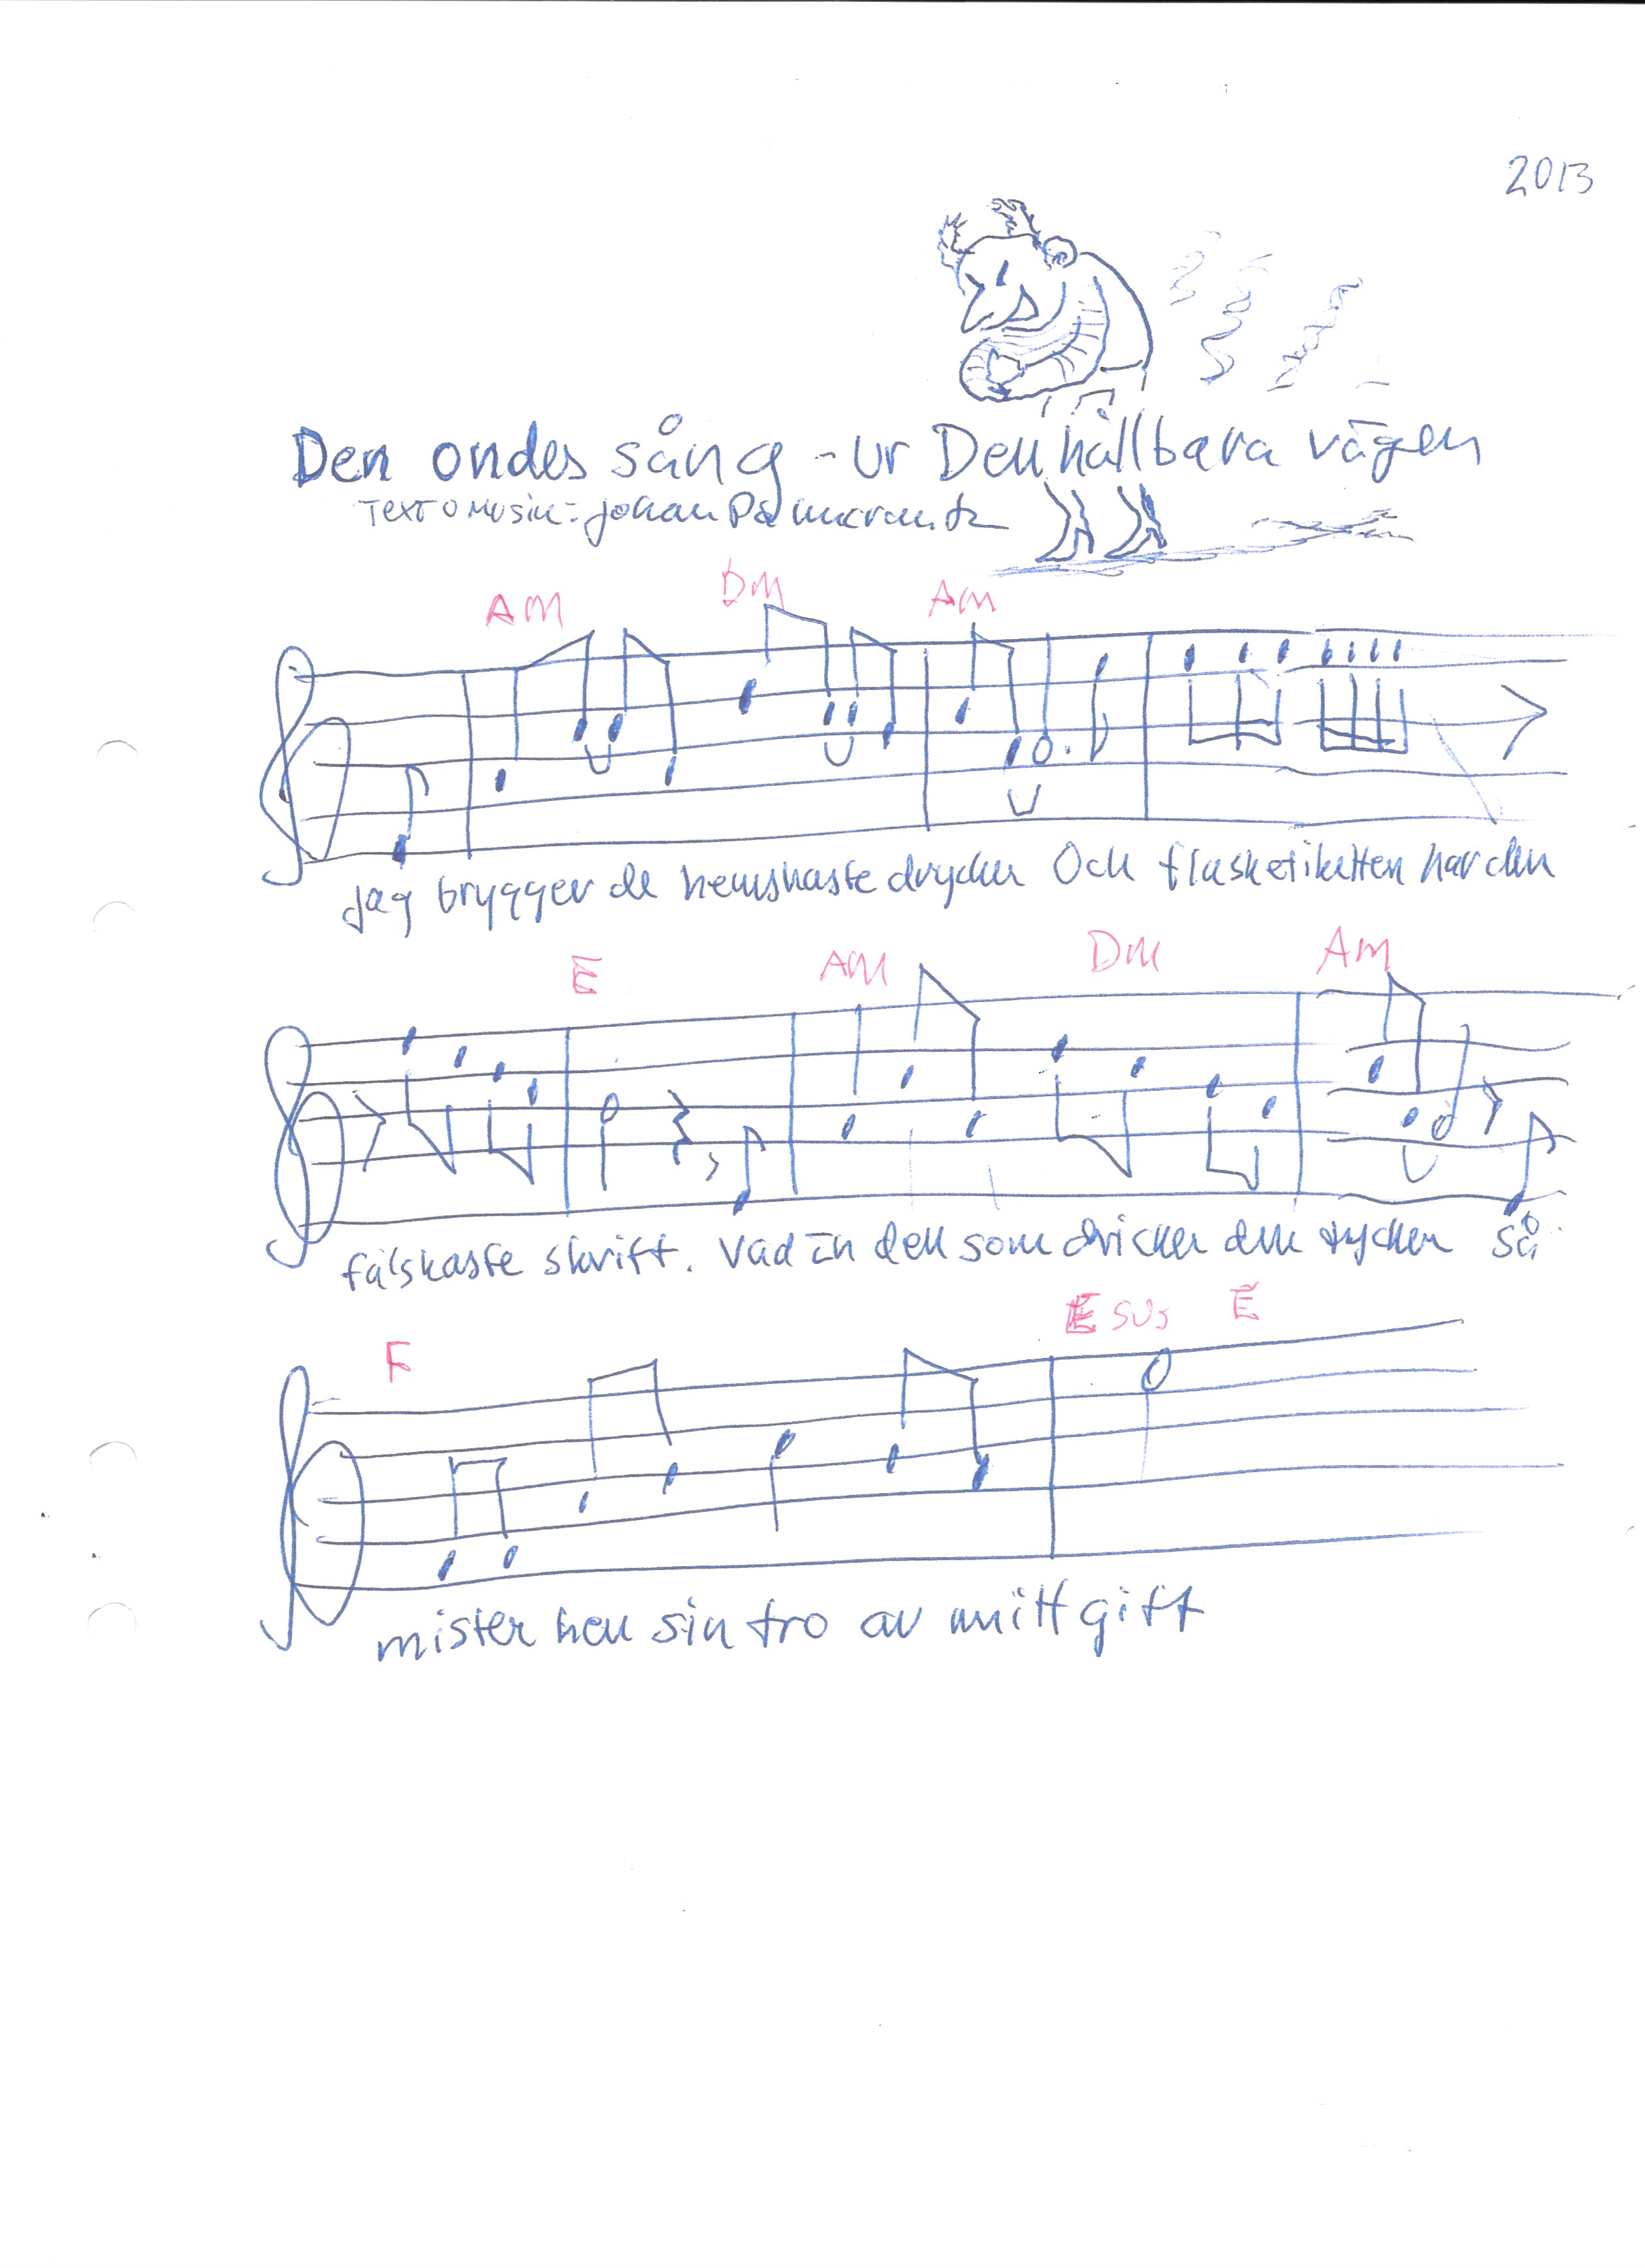 2013
Den ondes sång - ur Den hållbara vägen
Text o musik: Johan Palmcrantz
Am Dm Am
Jag brygger de hemskaste drycker Och flasketiketten har den
E Am Dm Am
falskaste skrift. Vad än den som dricker den tycker så
F Esus E
mister hen sin tro av mitt gift